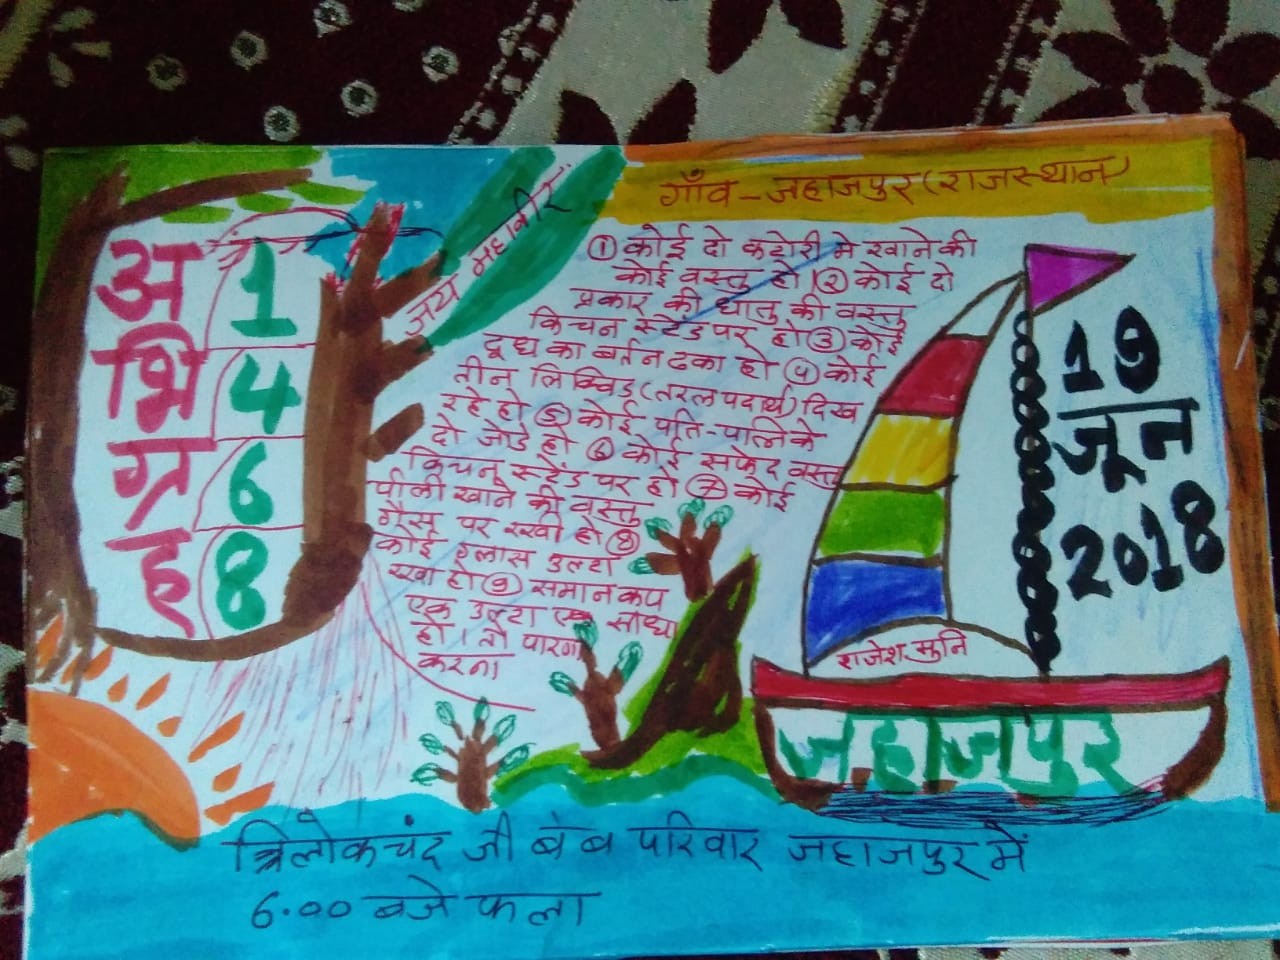 गाँव-जहाजपुर(राजस्थान)
जय महावीर
अभिग्रह
1
4
6
8
① कोई दो कटोरी मे खाने की
कोई वस्तु हो ② कोई दो
प्रकार की धातु की वस्तु
किचन स्टेंड पर हो ③ कोई
दूध का बर्तन ढका हो ④ कोई
तीन लिक्विड (तरल पदार्थ) दिख
रहे हो ⑤ कोई पति-पत्नि के
दो जोडे हो ⑥ कोई सफेद वस्तु
किचन स्टेंड पर हो ⑦ कोई
पीली खाने की वस्तु
गैस पर रखी हो ⑧
कोई ग्लास उल्टा
रखा हो ⑨ समान कप
एक उल्टा एक सीधा
हो। तो पारणा
करना
19
जून
2018
राजेश मुनि
जहाजपुर
त्रिलोकचंद जी बंब परिवार जहाजपुर में
6.00 बजे फला